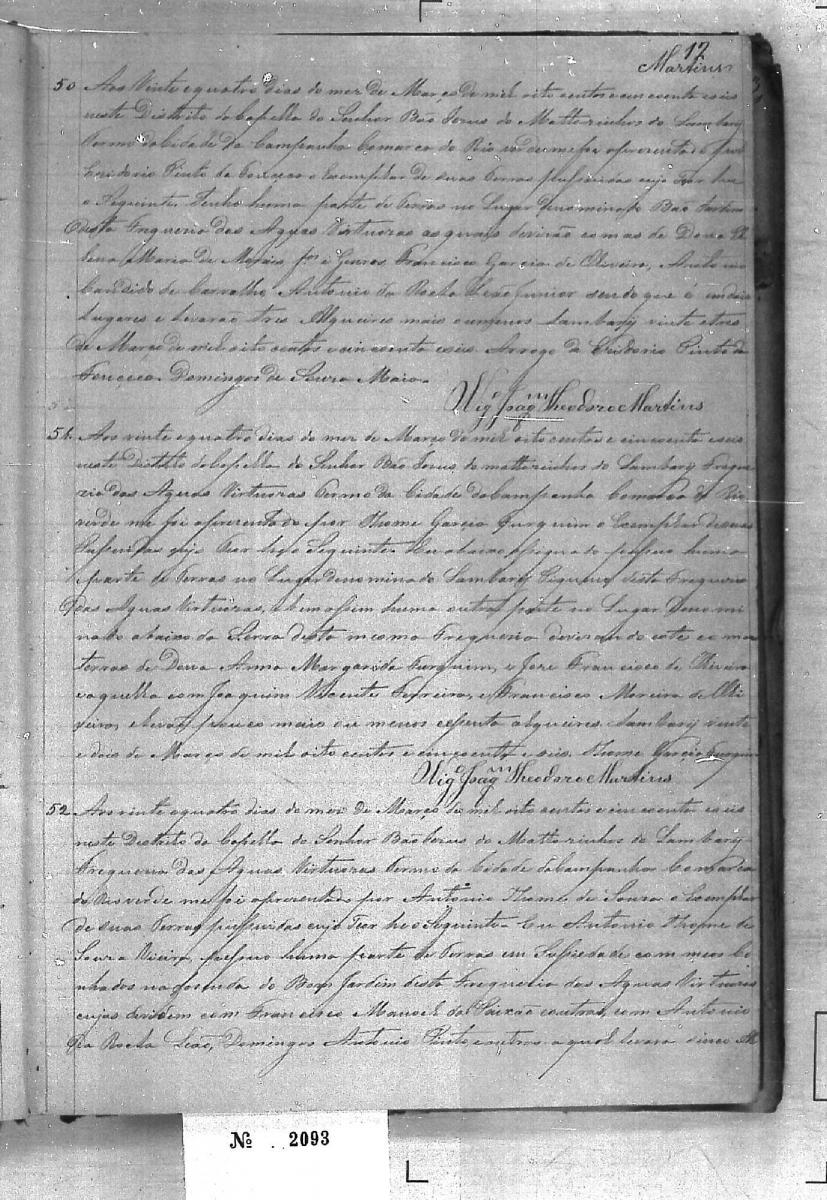 17
Martins
50 Aos Vinte e quatro dias do mez de Março de mil oito centos e cincoenta e seis
neste Distrito da Capella do Senhor Bão Jesus do Mattozinhos do Lambary
Termo da Cidade da Campanha Comarca do Rio verde me foi aprezentado por
Pinto da Fonceca o Exemplar de suas Terras pussuidas cujo Tior he
o Seguinte. Tenho huma parte de Terras no Lugar denominado Bão Jardim
desta Freguezia das Agoas Virtuozas as quais devizão com as de Dona
Maria de Morais Genros Francisco Garcia de Oliveira, Antonio
Candido de Carvalho Antonio da Rocha Leão Junior sendo que é em dois
Lugares e levarão tres Alqueires mais ou menos Lambary vinte e tres
de Março de mil oito centos e cincoenta e seis. Arrogo de Pinto da
Fonceca. Domingos de Souza Maia.
Vigº Joaqm Theodoro Martins
51. Aos vinte e quatro dias do mez de Março de mil oito centos e cincoenta e seis
neste Distrito da Capella do Senhor Bão Jesus do mattozinhos do Lambary Fregue
zia das Agoas Virtuozas Termo da Cidade da Campanha Comarca do Rio
verde me foi aprezentado por Thome Garcia Furquim o Exemplar de suas
Pussuidas cujo Tior he o Seguinte. Eu abaixo assignado pussuo huma
parte de Terras no Lugar denominado Lambary Piqueno desta Freguezia
das Agoas Virtuozas, e bem assim huma outra parte no Lugar Denomi
nado abaixo da Serra desta mesma Freguezia devizando este com as
terras de Dona Anna Margarida Furquim, e Joze Francisco de Oliveira
e aquella com Joaquim Vicente Ferreira, e Francisco Moreira de Oli
veira, e levará pouco mais ou menos alqueires. Lambary vinte
e dois de Março de mil oito centos e cincoenta e seis. Thome Garcia Furquim
Vigº Joaqm Theodoro Martins
52. Aos vinte e quatro dias do mez de Março de mil oito centos e cincoenta e seis
neste Distrito da Capella do Senhor Bão Jezus do Mattozinhos do Lambary
Freguezia das Agoas Virtuozas Termo da Cidade da Campanha Comarca
do Rio verde me foi aprezentado por Antonio Thome de Souza o Exemplar
de suas Terras pussuidas cujo Tior he o Seguinte. Eu Antonio Thome de
Souza Vieira, pussuo huma parte de Terras em Suciedade com meos Cu
nhados na fazenda do Bom Jardim desta Freguezia das Agoas Virtuozas
cujas devidem com Francisco Manoel da Paixão e outros, com Antonio
da Rocha Leão, Domingos Antonio Pinto e outros a qual levara cinco Al
Nº 2093